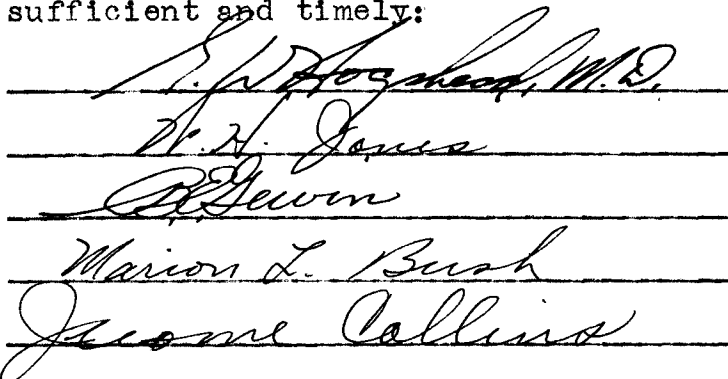 sufficient and timely:
Hogshead, M.D.
W. H. Jones
Gewin
Marion L. Bush
Jerome Collins